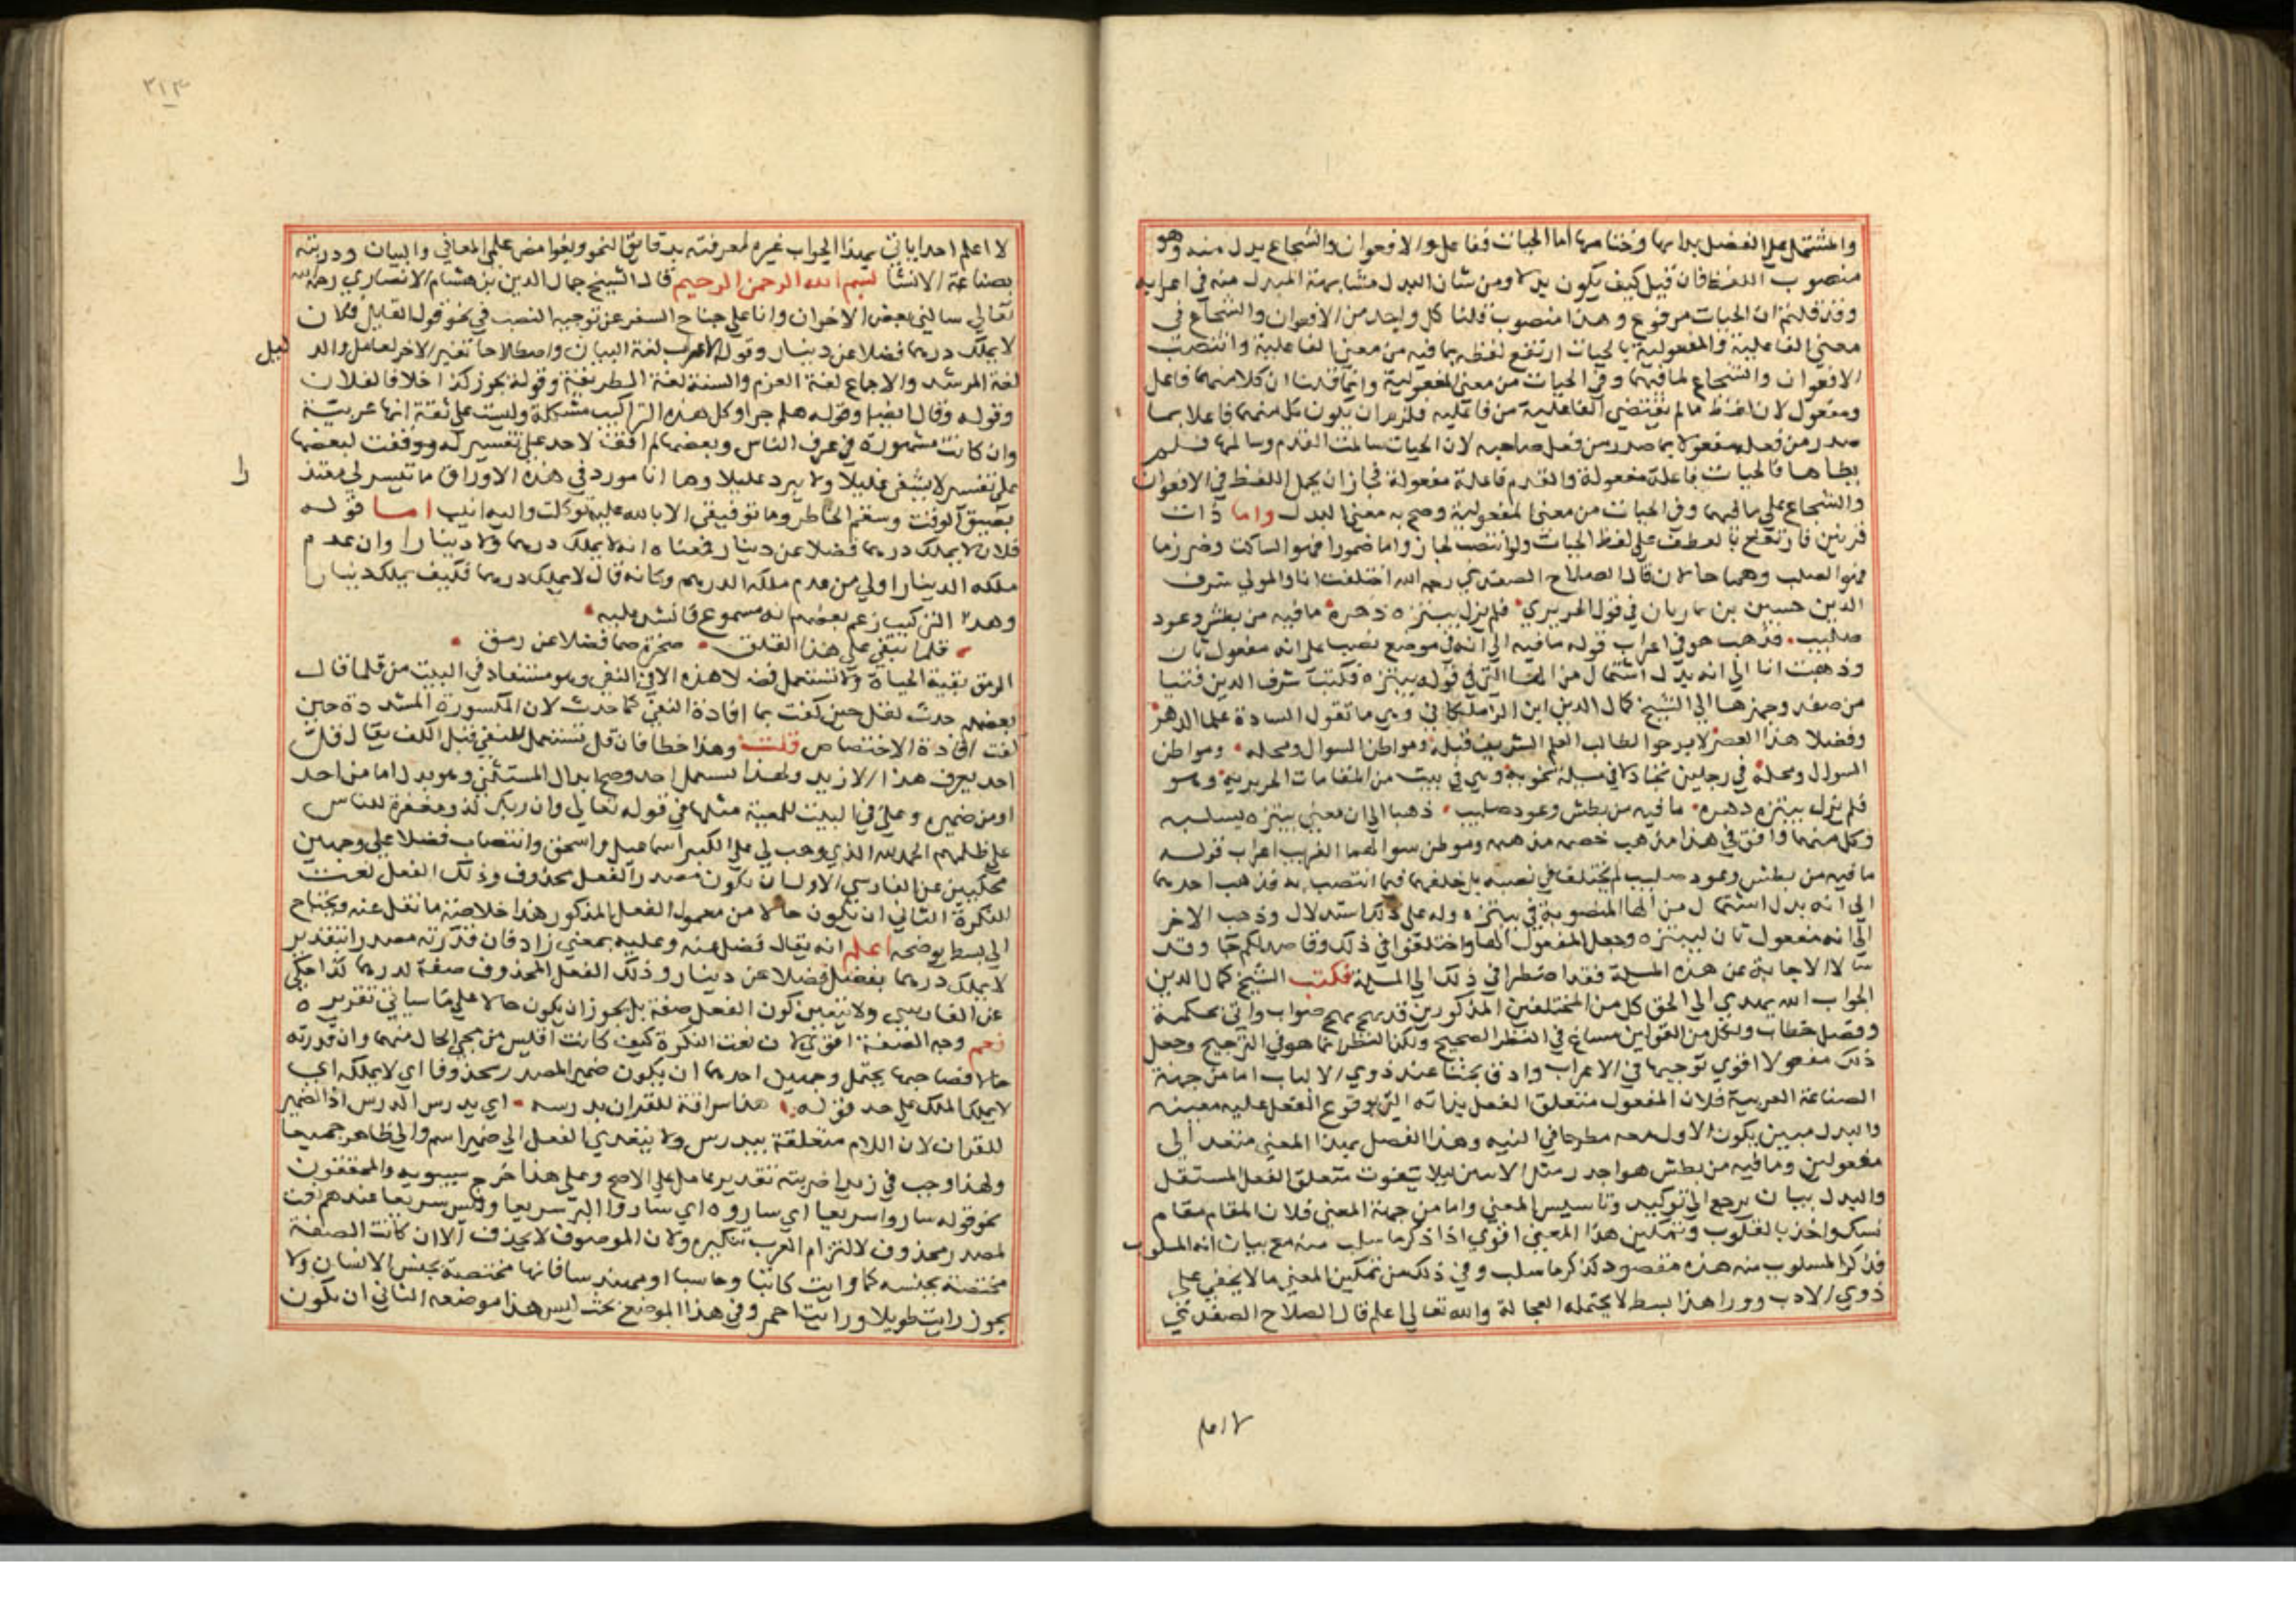 والمشتمل على الفضل بدايها وختامها اما الحيات ففاعل والافعوان والشجاع بدل منه وهو
منصوب اللفظ فان قيل كيف يكون بدلا ومن شان البدل مشابهة المبدل منه في اعرابه
وقد قلتم ان الحيات مرفوع وهذا منصوب قلنا كل واحد من الافعوان والشجاع في
معنى الفاعلية والمفعولية بالحيات ارتفع لفظه بما فيه من معنى الفاعلية وانتصب
الافعوان والشجاع لما فيهما وفي الحيات من معنى المفعولية وانما قلنا ان كلا منهما فاعل
ومفعول لان لفظ سالم يقتضي الفاعلية من فاعليه فلزم ان يكون كل منهما فاعلا بما
صدر من فعله مفعولا بما صدر من فعل صاحبه لان الحيات سالمت القدم وسالمها فلم
يطاها فالحيات فاعلة مفعولة والقدم فاعلة مفعولة فجاز ان يحمل اللفظ في الافعوان
والشجاع على ما فيهما وفي الحيات من معنى المفعولية وصح به معنى البدل واما ذات
قرنين فارتفع بالعطف على لفظ الحيات ولو انتصب لجاز واما ضموزا فهو الساكت وضرزما
فهو الصلب وهما حالان قال الصلاح الصفدي رحمه الله اختلفت انا والمولى شرف
الدين حسين بن ريان في قول الحريري فلم يزل يبتزه دهره ما فيه من بطش وعود
صليب فذهب هو في اعراب قوله ما فيه الى انه في موضع نصب على انه مفعول ثان
وذهبت انا الى انه بدل اشتمال من الها التي في قوله يبتزه فكتب شرف الدين فتيا
من صفد وجهزها الى الشيخ كمال الدين ابن الزملكاني وهي ما تقول السادة علما الدهر
وفضلا هذا العصر لا برحوا لطالب العلم الشريف قبله ومواطن السوال ومحله ومواطن
السوال ومحله في رجلين تجادلا في مسلة نحوية وهي في بيت من المقامات الحريرية وهو
فلم يزل يبتزه دهره ما فيه من بطش وعود صليب ذهبا الى ان معنى يبتزه يسلبه
وكل منهما وافق في هذا مذهب خصمه مذهبه وموطن سوالهما الغريب اعراب قوله
ما فيه من بطش وعود صليب لم يختلفا في نصبه بل خلفهما فيما انتصب به فذهب احدهما
الى انه بدل اشتمال من الها المنصوبة في يبتزه وله على ذلك استدلال وذهب الاخر
الى انه مفعول ثان ليبتزه وجعل المفعول الها واختلفوا في ذلك وقاصداكم جا وقد
سالا الاجابة عن هذه المسلة فقد اضطرا في ذلك الى المسلة فكتب الشيخ كمال الدين
الجواب الله يهدي الى الحق كل من المختلفين المذكورين قد نهج نهج صواب واتى بحكمة
وفصل خطاب ولكل من القولين مساغ في النظر الصحيح ولكن النظر انما هو في الترجيح وجعل
ذلك مفعولا اقوى توجيها في الاعراب وادق بحثا عند ذوي الالباب اما من جهة
الصناعة العربية فلان المفعول متعلق الفعل بذاته التي بوقوع الفعل عليه معينه
والبدل مبين يكون الاول معه مطرحا في النيه وهذا الفصل بهذا المعنى متعد الى
مفعولين وما فيه من بطش هو احد رمثل الاسين ليلا يفوت متعلق الفعل المستقل
والبدل بيان يرجع الى توكيد وتاسيس المعنى واما من جهة المعنى فلان المقام مقام
تشك واخذ بالقلوب وتمكين هذا المعنى اقوى اذا ذكر ما سلب منه مع بيان انه المسلوب
فذكر المسلوب منه هذه مقصود كذكر ما سلب وفي ذلك من تمكين المعنى ما لا يخفى على
ذوي الادب وورا هذا بسط لا يحتمله العجالة والله تعالى اعلم قال الصلاح الصفدي
لا اعلم
٣١٣
لا اعلم احدا ياتي بهذا الجواب غيره لمعرفته بدقايق النحو وبغوامض علمي المعاني والبيان ودربته
بصناعة الانشا بسم الله الرحمن الرحيم قال الشيخ جمال الدين بن هشام الانصاري رحمه الله
تعالى سالني بعض الاخوان وانا على جناح السفر عن توجيه النصب في نحو قول القايل فلان
لا يملك درهما فضلا عن دينار وقوله الاعراب لغة البيان واصطلاحا تغير الاخر لعامل والدليل
لغة المرشد والاجماع لغة العزم والسنة لغة الطريقة وقوله يجوز كذا خلافا لفلان
وقوله وقال ايضا وقوله هلم جرا وكل هذه التراكيب مشكلة وليست على ثقة انها عربية
وان كانت مشهورة في عرف الناس وبعضها لم اقف لاحد على تفسير له ووقفت لبعضها
على تفسير لا يشفي غليلا ولا يبرد عليلا وها انا مورد في هذه الاوراق ما تيسر لي معتذرا
بضيق الوقت وسقم الخاطر وما توفيقي الا بالله عليه توكلت واليه انيب اما قوله
فلان لا يملك درهما فضلا عن دينار فمعناه انه لا يملك درهما ولا دينارا وان عدم
ملكه الدينار اولى من عدم ملكه الدرهم وكانه قال لا يملك درهما فكيف يملك دينارا
وهذا التركيب زعم بعضهم انه مسموع فانشد عليه
قلما يبقى على هذا القلق صخرة صما فضلا عن رمق
الرمق بقية الحياة ولا تستعمل فضلا هذه الا في النفي وهو مستفاد في البيت من قلما قال
بعضهم حدث لقل حين كفت بما افادة النفي كما حدث لان المكسورة المشددة حين
كفت افادة الاختصاص قلت وهذا خطا فان قل تستعمل للنفي قبل الكف يقال قل
احد يعرف هذا الا زيد ولهذا استعمل احد وصح ابدال المستثنى وهو بدل اما من احد
او من ضميره وعلى في البيت للمعية مثلها في قوله تعالى وان ربك لذو مغفرة للناس
على ظلمهم الحمد لله الذي وهب لي على الكبر اسماعيل واسحق وانتصاب فضلا على وجهين
محكيين عن الفارسي الاول ان يكون مصدرا لفعل محذوف وذلك الفعل نعت
للنكرة الثاني ان يكون حالا من معمول الفعل المذكور هذا خلاصة ما نقل عنه ويحتاج
الى بسط يوضحه اعلم انه يقال فضل عنه وعليه بمعنى زاد فان قدرته مصدرا بتقدير
لا يملك درهما يفضل فضلا عن دينار وذلك الفعل المحذوف صفة لدرهما كذا حكي
عن الفارسي ولا يتعين كون الفعل صفة بل يجوز ان يكون حالا على ما سياتي تقريره
نعم وجه الصفة اقوى لان نعت النكرة كيف كانت اقيس من مجي الحال منها وان قدرته
حالا فصاحبها يحتمل وجهين احدهما ان يكون ضمير المصدر محذوفا اي لا يملكه اي
لا يملك الملك على حد قوله هذا سراقة للقران يدرسه اي يدرس الدرس اذ الضمير
للقران لان اللام متعلقة بيدرس ولا يتعدى الفعل الى ضمير اسم والى ظاهره جميعا
ولهذا وجب في زيدا ضربته تقدير عامل على الاصح وعلى هذا خرج سيبويه والمحققون
نحو قوله ساروا سريعا اي ساروه اي ساروا السير سريعا وليس سريعا عندهم نعت
لمصدر محذوف لالتزام العرب تنكيره ولان الموصوف لا يحذف الا ان كانت الصفة
مختصة بجنسه كما في رايت كاتبا وحاسبا او مهندسا فانها مختصة بجنس الانسان ولا
يجوز رايت طويلا ورايت احمر وفي هذا الموضع بحث ليس هذا موضعه الثاني ان يكون